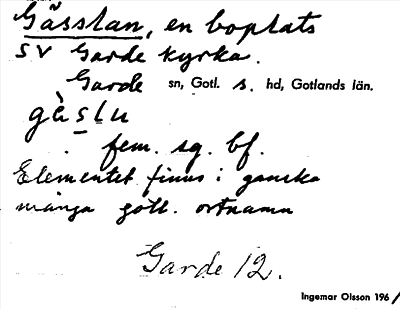 Gässlan, en boplats
SV Garde kyrka.
Garde sn, Gotl. s. hd, Gotlands län.
gèslu
fem. sg. bf.
Elementet finns i ganska
många gotl. ortnamn
Garde 12.
Ingemar Olsson 196